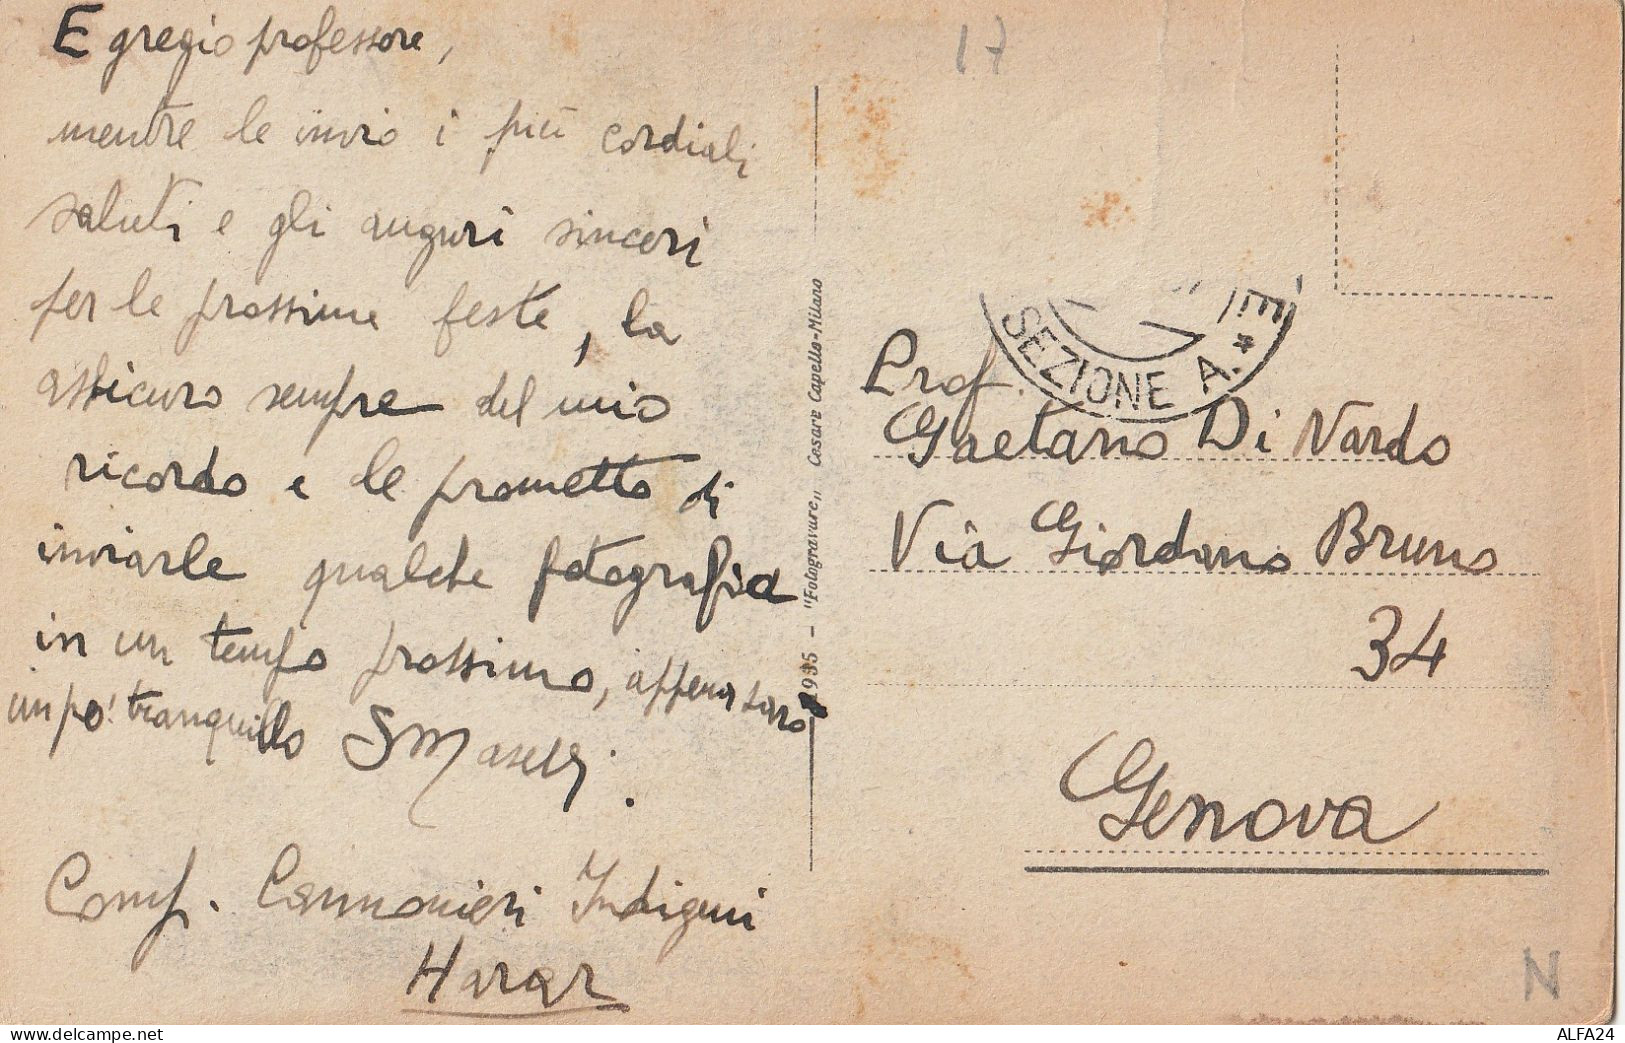 17
Egregio professore,
mentre le invio i più cordiali
saluti e gli auguri sinceri
per le prossime feste, la
assicuro sempre del mio
ricordo e le prometto di
inviarle qualche fotografia
in un tempo prossimo, appena sarò
un po' tranquillo
Comp. Cannonieri Indigeni
Harar
1935 - "Fotogravure" Cesare Capello-Milano
SEZIONE A. *
Prof.
Gaetano Di Nardo
Via Giordano Bruno
34
Genova
N
ALFA24